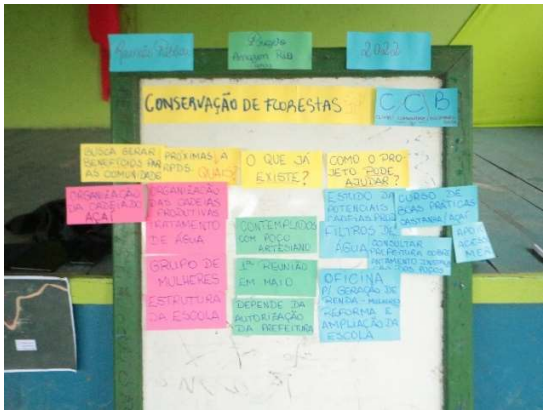 2022
CONSERVAÇÃO DE FLORESTAS
C C B
BUSCA GERAR
BENEFÍCIOS PAR
AS COMUNIDADE
PRÓXIMAS A
RPDS.
QUAIS?
O QUE JÁ
EXISTE?
COMO O PRO-
JETO PODE
AJUDAR?
ORGANIZAÇÃO
DA CADEIA DO
AÇAÍ
ORGANIZAÇÃO
DAS CADEIAS
PRODUTIVAS
TRATAMENTO
DE ÁGUA
GRUPO DE
MULHERES
ESTRUTURA
DA ESCOLA
CONTEMPLADOS
COM POÇO
ARTESIANO
1ª REUNIÃO
EM MAIO
DEPENDE DA
AUTORIZAÇÃO
DA PREFEITURA
ESTUDO DA
POTENCIAIS
CADEIAS PROD
FILTROS DE
ÁGUA
CURSO DE
BOAS PRÁTICAS
CASTANHA AÇAÍ
CONSULTAR
PREFEITURA SOBRE
DOS POÇOS
OFICINA
P/ GERAÇÃO DE
RENDA - MULHERES
REFORMA E
AMPLIAÇÃO DA
ESCOLA